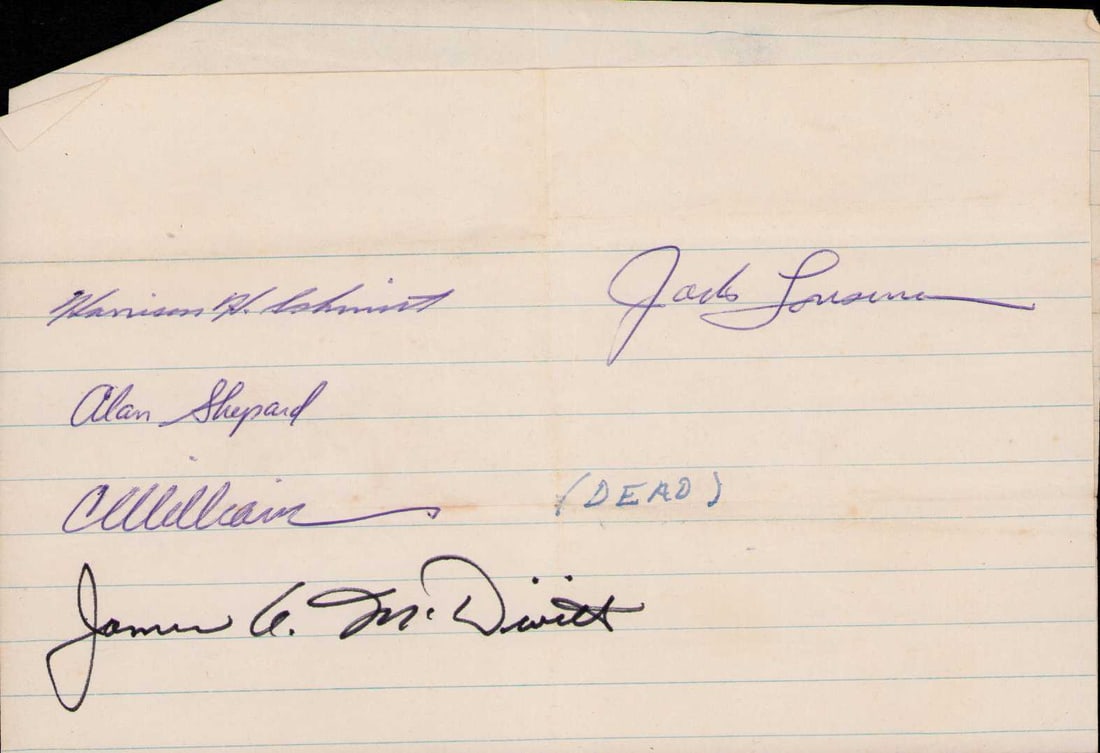 Harrison H. Schmitt Jack Lousma
Alan Shepard
CCWilliams (DEAD)
James A. McDivitt